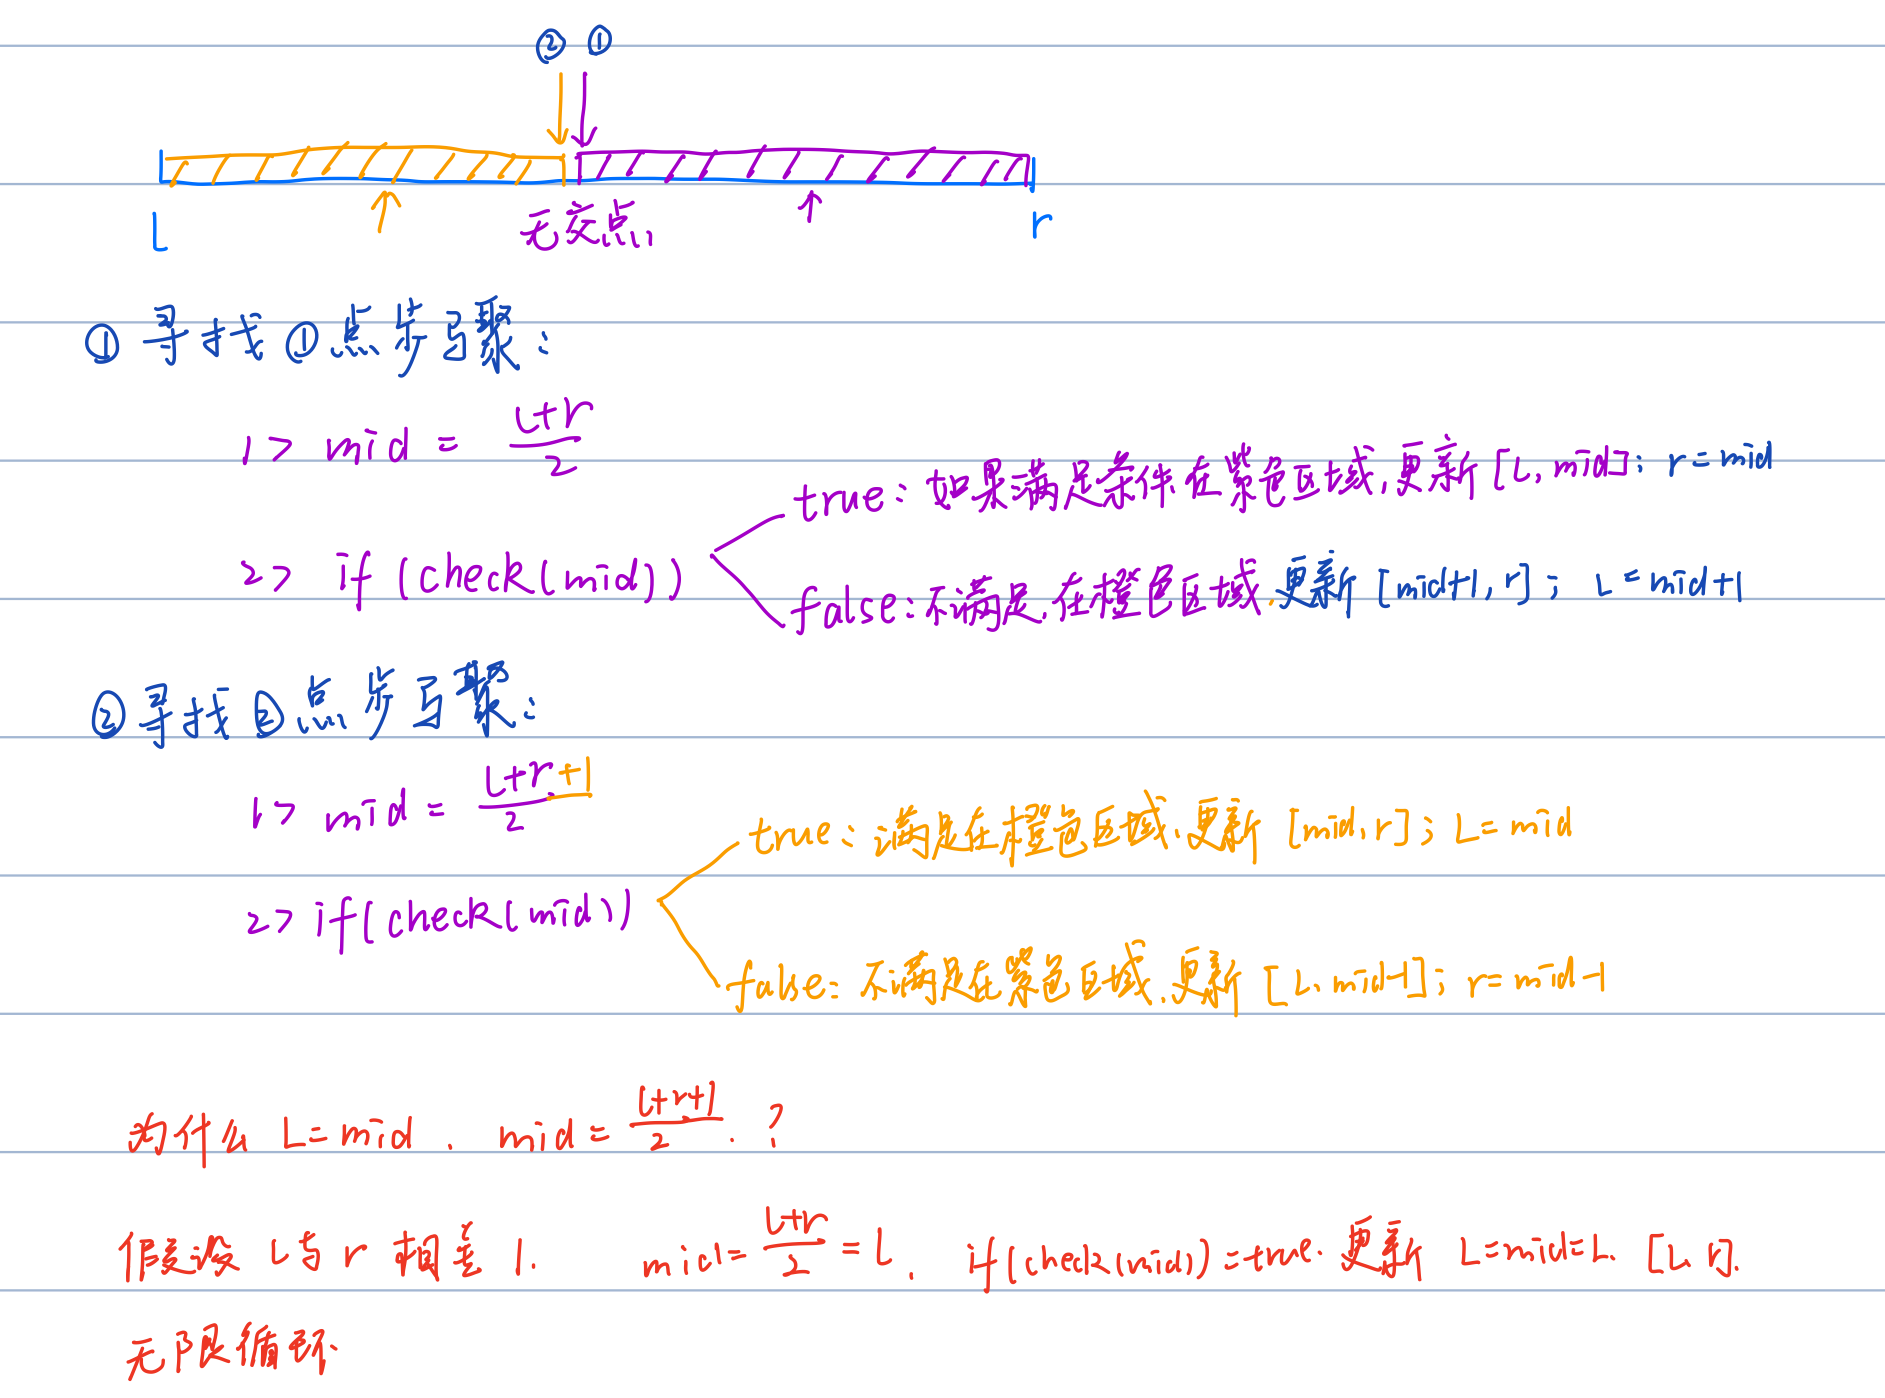 ② ①
l 无交点 r
① 寻找①点步骤：
1> mid = (l+r)/2
true：如果满足条件在紫色区域，更新 [L, mid]； r = mid
2> if (check(mid))
false：不满足，在橙色区域，更新 [mid+1, r]； L = mid+1
② 寻找②点步骤：
1> mid = (l+r+1)/2
true：满足在橙色区域，更新 [mid, r]； L = mid
2> if(check(mid))
false：不满足在紫色区域，更新 [L, mid-1]； r = mid-1
为什么 L=mid . mid = (l+r+1)/2 . ?
假设 L与 r 相差 1. mid = (L+r)/2 = L. if(check(mid))=true. 更新 L=mid=L. [L, r].
无限循环.